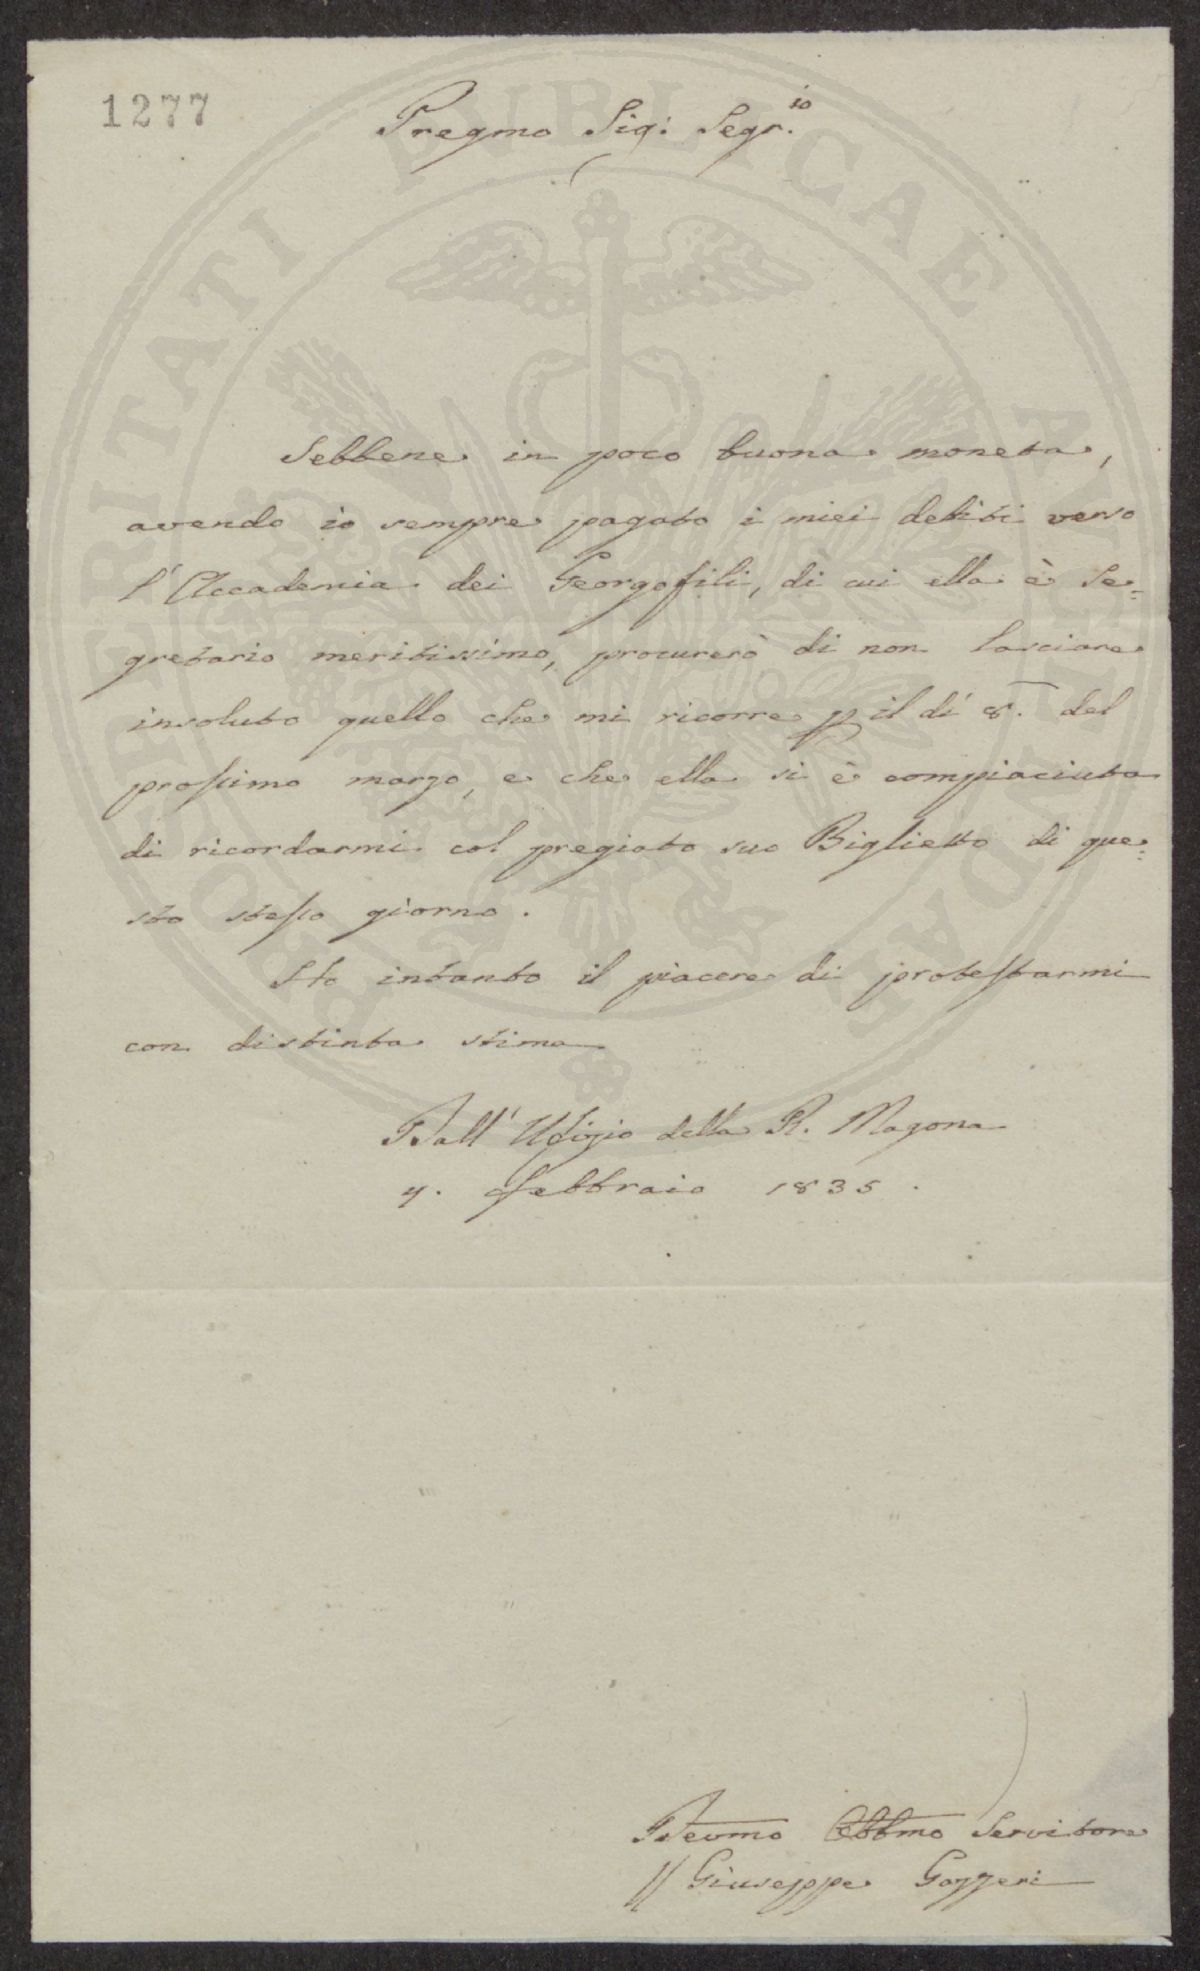 1277
Pregmo Sig: Segr.io
Sebbene in poco buona moneta,
avendo io sempre pagato i miei debiti verso
l'Accademia dei Georgofili, di cui ella è Se=
gretario meritissimo, procurerò di non lasciare
insoluto quello che mi ricorre p il dì 8. del
prossimo marzo, e che ella si è compiaciuta
di ricordarmi col pregiato suo Biglietto di que=
sto stesso giorno.
Ho intanto il piacere di protestarmi
con distinta stima
Dall' Ufizio della R. Magona
4. Febbraio 1835.
Devmo Obbmo Servitore
Giuseppe Gazzeri
PROSPERITATI PUBLICAE AUGENDAE